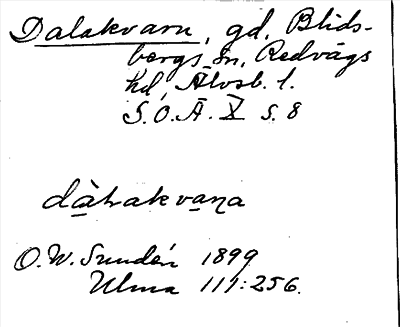 Dalakvarn, gd, Blids-
bergs sn, Redvägs
hd, Älvsb. l.
S.O.Ä. X s. 8
dàlrakvaɳa
O.W. Sundén 1899
Ulma 111:256.